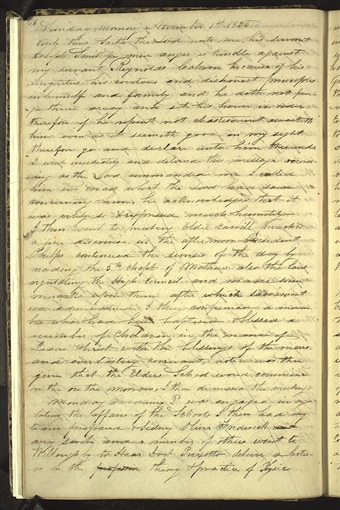 Sunday morning November 1st 1835
verily thus Saith the Lord unto me his servant
Joseph Smith jr mine anger is kindled against
my servant Reynolds Cahoon because of his
iniquities his covetous and dishonest principles
in himself and family and he doth not purge
them away and set his house in order
therefore if he repent not chastisment awaiteth
him even as it seemeth good in my sight
therefore go and declare unto him these words
I went imediately and delivered this message according
as the Lord commanded me I called
him in & read what the Lord had said
concerning him, he acknowledged that it
was verily so & expressed much humility
I then went to meeting Elder Carrill preached
a fine discourse, in the afternoon President
Phelps continued the service of the day by
reading the 5th chapt of Mathew also the laws
regulating the High Council and made some
remarks upon them after which sacrament
was administered I then confirmed a number
who have been baptised & blessed a
number of Children in the name of
Jesus Christ with the blessings of the new
and everlasting covenant, notice was then
given that the Elders School would commence
on the on the morrow, I then dismissed the meeting
Monday morning 2d was engaged in regulating
the affairs of the School, I then had my
team prepared & Sidney Oliver Frederick and
and a number of others went to
Willoughby to Hear Doct Piexotto deliver a lecture
on the profession theory & practice of Physic